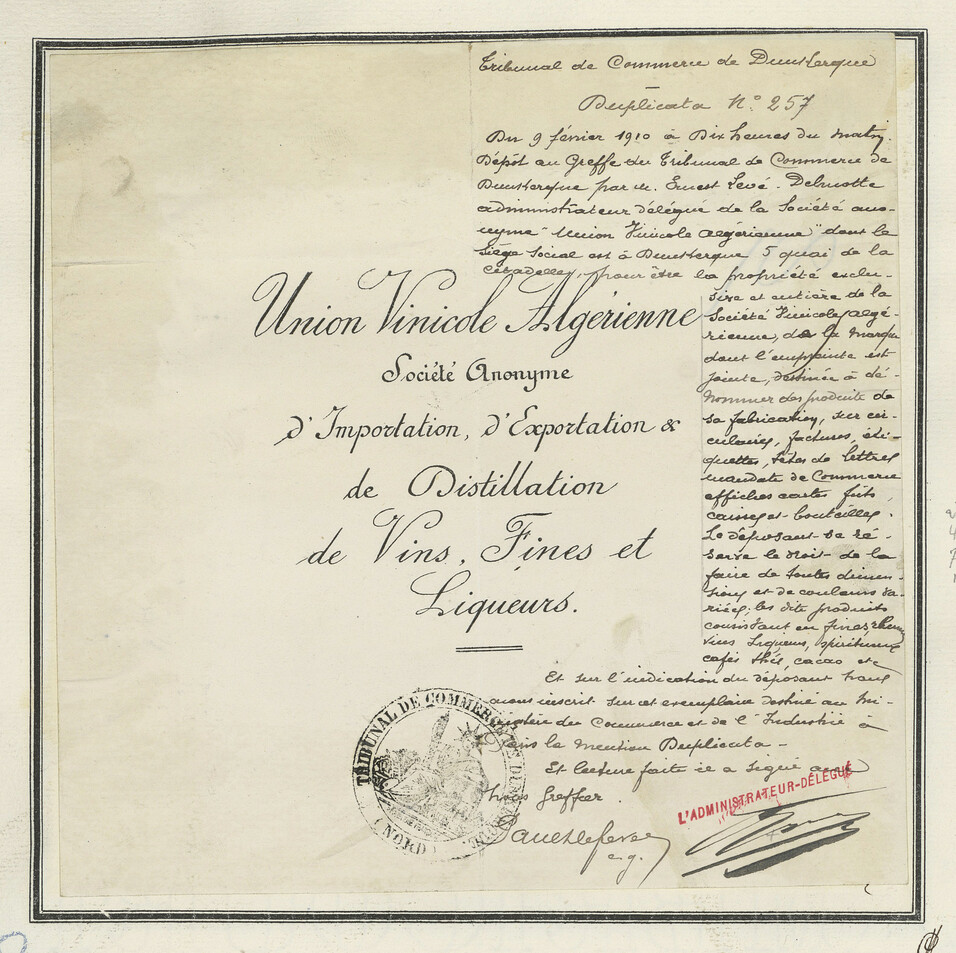 Tribunal de Commerce de Dunkerque
Duplicata N° 257
Du 9 février 1910 à Dix heures du matin.
Dépôt au Greffe du Tribunal de Commerce de
Dunkerque par M. Ernest Levé-Delmotte
administrateur délégué de la Société ano-
nyme "Union Vinicole Algérienne" dont le
Siège Social est à Dunkerque 5 quai de la
Citadelle, pour être la propriété exclu-
sive et entière de la
Société Vinicole Algé-
rienne, de la marque
dont l'empreinte est
jointe, destinée à dé-
nommer des produits de
sa fabrication, sur cir-
culaires, factures, éti-
quettes, têtes de lettres
mandats de Commerce
affiches cartes futs,
caisses et bouteilles.
Le déposant se ré-
serve le droit de la
faire de toutes dimen-
sions et de couleurs va-
riées; les dits produits
consistant en fines, rhums
vins Liqueurs, spiritueux
cafés thés, cacao etc
Union Vinicole Algérienne
Société Anonyme
d'Importation, d'Exportation &
de Distillation
de Vins, Fines et
Liqueurs.
Et sur l'indication du déposant nous
avons inscrit sur cet exemplaire destiné au Mi-
nistère du Commerce et de l'Industrie à
Paris la mention Duplicata -
Et lecture faite il a signé avec
Nous Greffier.
TRIBUNAL DE COMMERCE DE DUNKERQUE
(NORD)
L'ADMINISTRATEUR-DÉLÉGUÉ